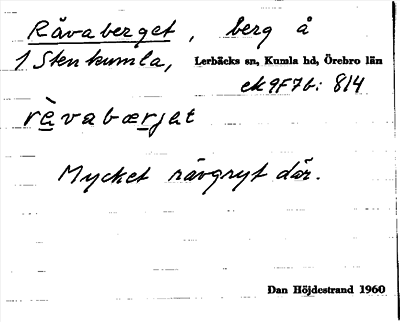 Rävaberget, berg å
1 Stenkumla, Lerbäcks sn, Kumla hd, Örebro län
ek 9F7b: 814
rèvabærjet
Mycket rävgryt där.
Dan Höjdestrand 1960